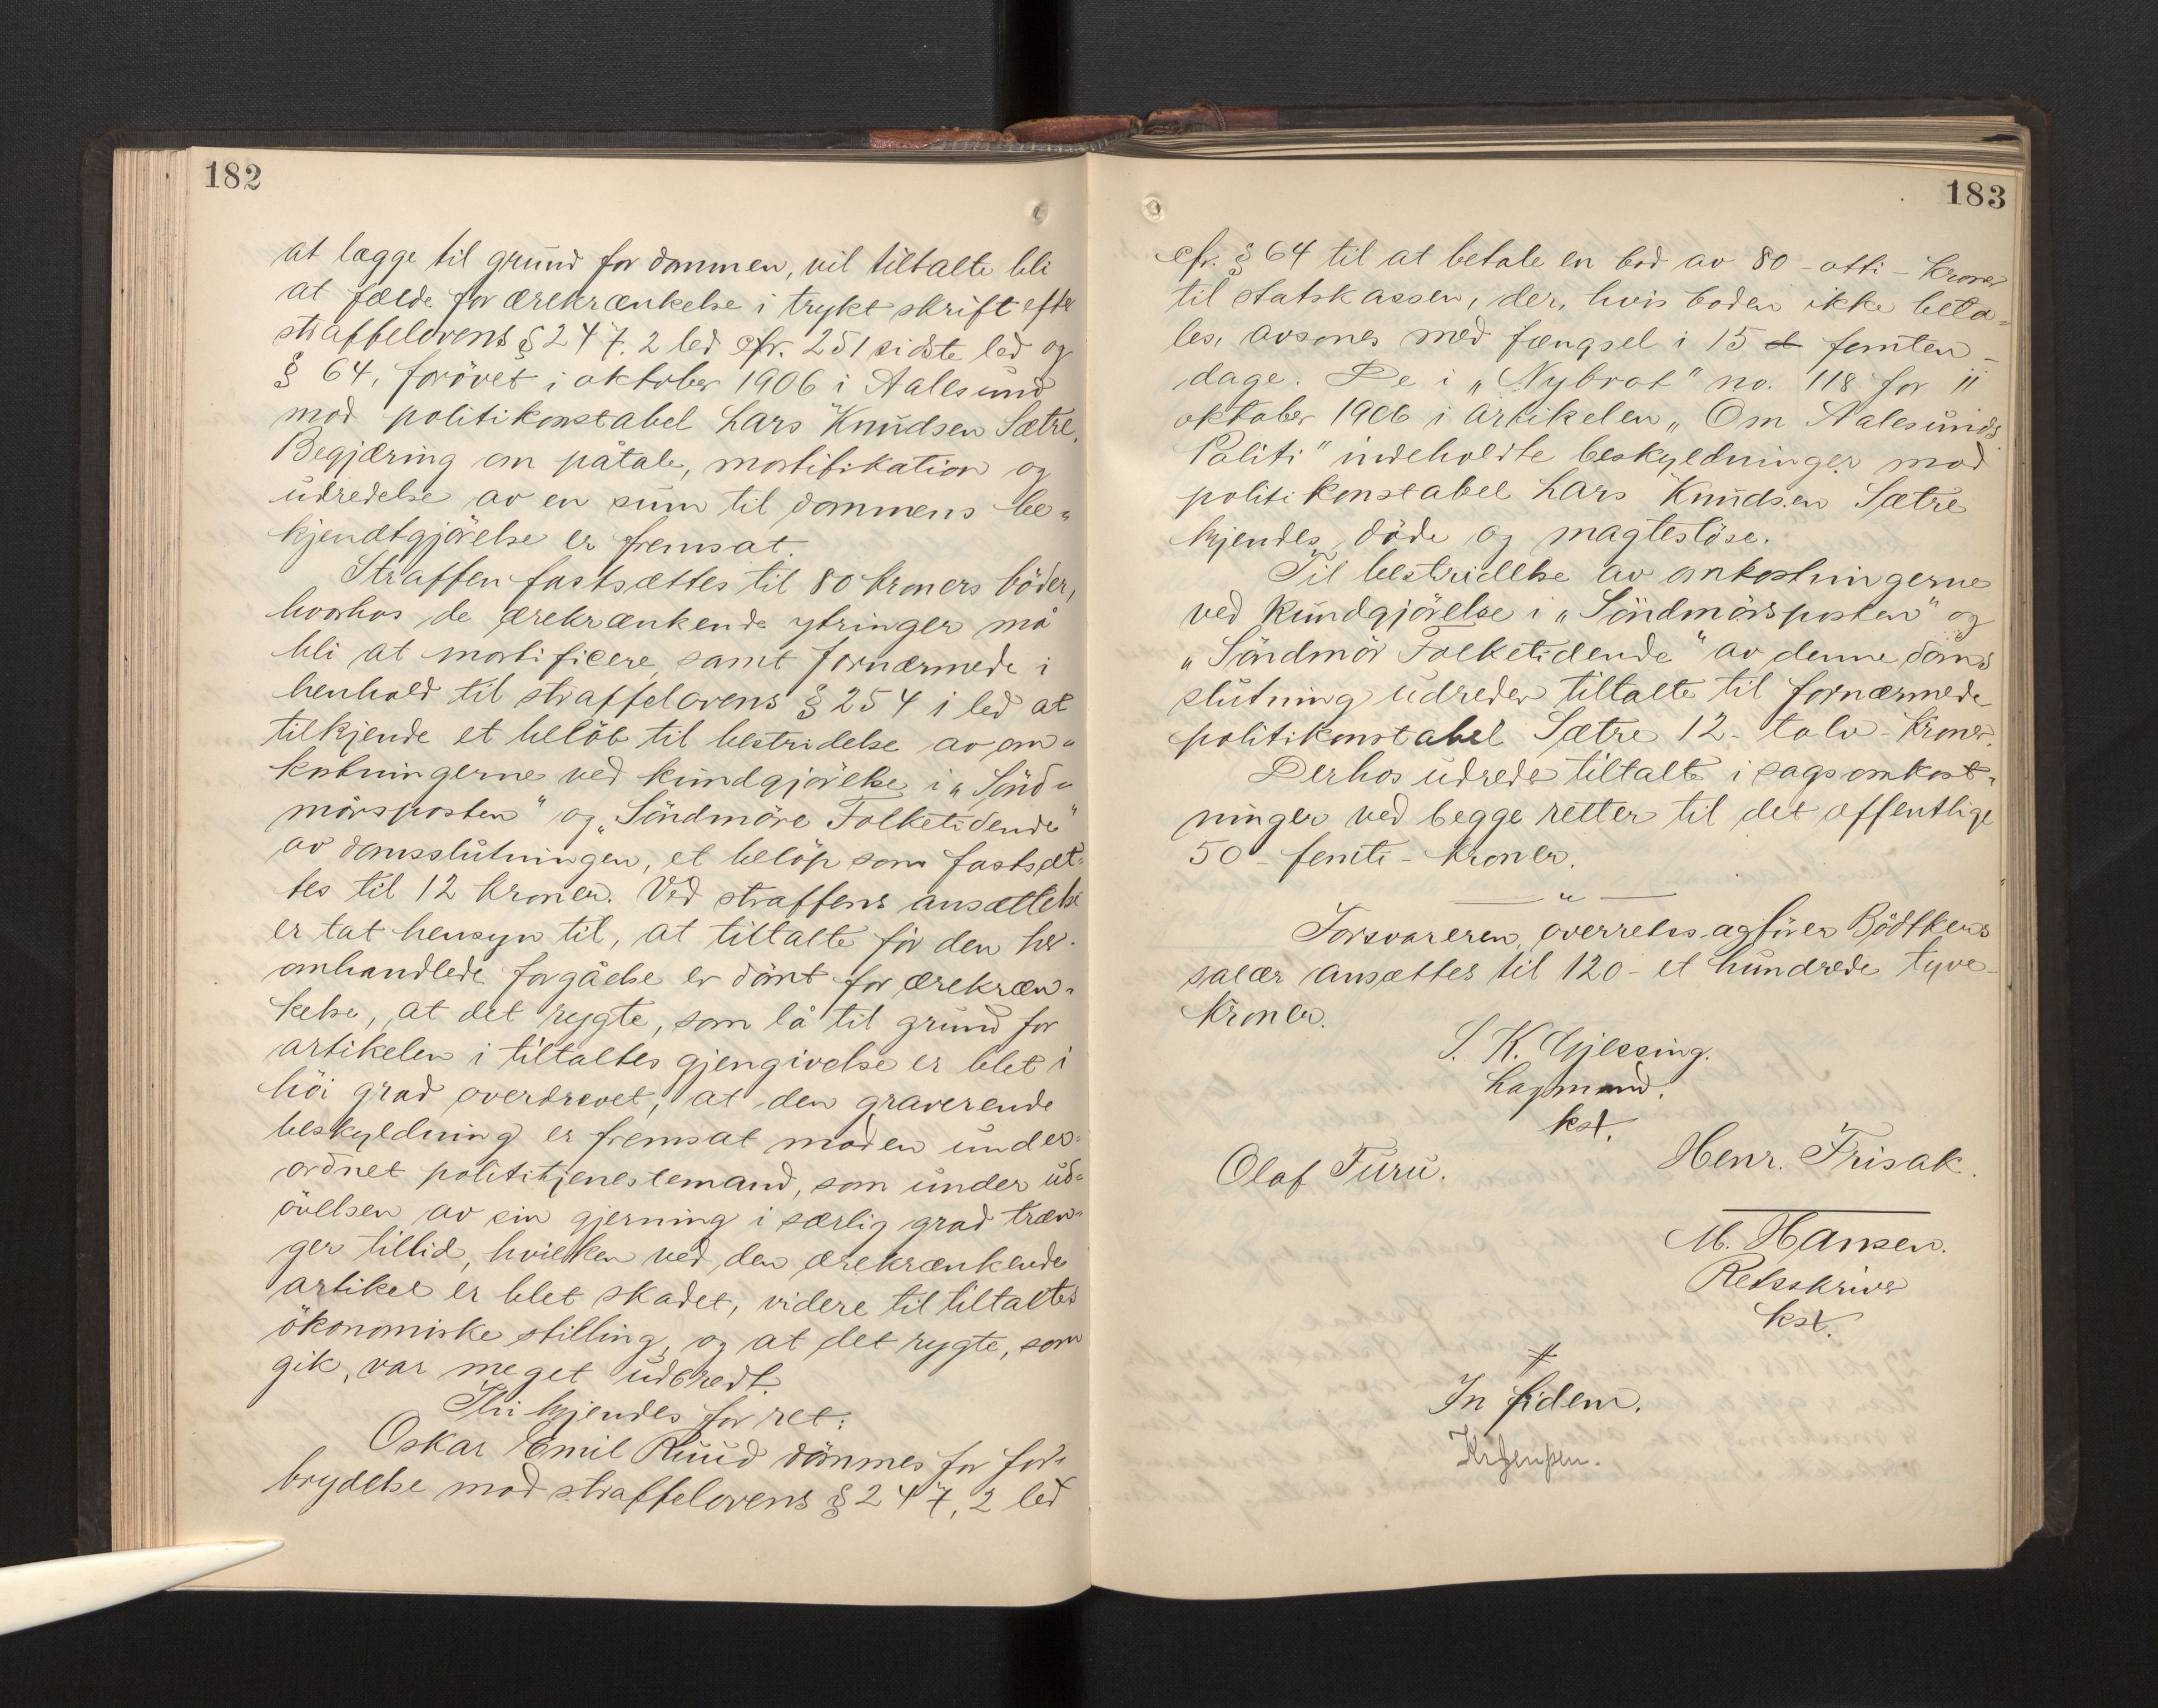 182
at lægge til grund for dommen, vil tiltalte bli
at fælde for ærekrænkelse i trykt skrift efter
straffelovens § 247. 2 led cfr. 251 sidste led og
§ 64, forövet i oktober 1906 i Aalesund
mod politikonstabel Lars Knudsen Sætre.
Begjæring om påtale, mortifikation og
udredelse av en sum til dommens be„
kjendtgjörelse er fremsat.
Straffen fastsættes til 80 kroners böder,
hvorhos de ærekrænkende ytringer må
bli at mortificere, samt fornærmede i
henhold til straffelovens § 254 i led at
tilkjende et belöb til bestridelse av om„
kostningerne ved kundgjörelse i „Sönd„
mörsposten" og „Söndmöre Folketidende"
av domsslutningen, et belöp som fastsæt=
tes til 12 kroner. Ved straffens ansættelse
er tat hensyn til, at tiltalte för den her
omhandlede forgåelse er dömt for ærekræn„
kelse, at det rygte, som lå til grund for
artikelen i tiltaltes gjengivelse er blet i
höi grad overdrevet, at den graverende
beskyldning er fremsat mod en under=
ordnet polititjenestemand, som under ud=
övelsen av sin gjerning i særlig grad træn„
ger tillid, hvilken ved den ærekrænkende
artikel er blet skadet, videre til tiltaltes
ökonomiske stilling, og at det rygte, som
gik, var meget udbredt.
Thi kjendes for ret:
Oskar Emil Ruud dömmes for for„
brydelse mod straffelovens § 247, 2 led
183
cfr. § 64 til at betale en bod av 80 - otti - kroner
til statskassen, der, hvis boden ikke beta=
les, avsones med fængsel i 15 femten -
dage. De i „Nybrot" no. 118 for 11
oktober 1906 i artikelen „Om Aalesunds
Politi" indeholdte beskyldninger mod
politikonstabel Lars Knudsen Sætre
kjendes döde og magteslöse.
Til bestridelse av omkostningerne
ved kundgjörelse i „Söndmörsposten" og
„Söndmör Folketidende" av denne doms
slutning udreder tiltalte til fornærmede
politikonstabel Sætre 12 - tolv - kroner.
Derhos udreder tiltalte i sagsomkost„
ninger ved begge retter til det offentlige
50 - femti - kroner.
— „ —
Forsvareren, overretssagförer Bödtkers
salær ansættes til 120 - et hundrede tyve -
kroner.
S. K. Gjessing.
Lagmand.
kst.
Olaf Furu.
Henr. Frisak.
M. Hansen.
Retsskriver
kst.
In fidem.